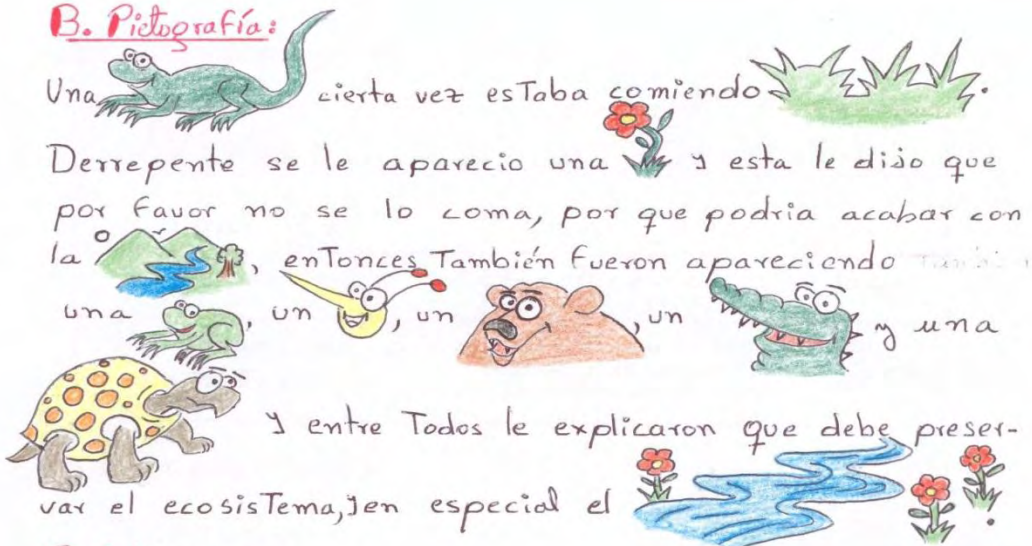 B. Pictografía:
Una cierta vez esTaba comiendo .
Derrepente se le aparecio una y esta le dijo que
por favor no se lo coma, por que podria acabar con
la , enTonces También fueron apareciendo
una , un , un , un y una
y entre Todos le explicaron que debe preser-
var el ecosisTema, y en especial el .